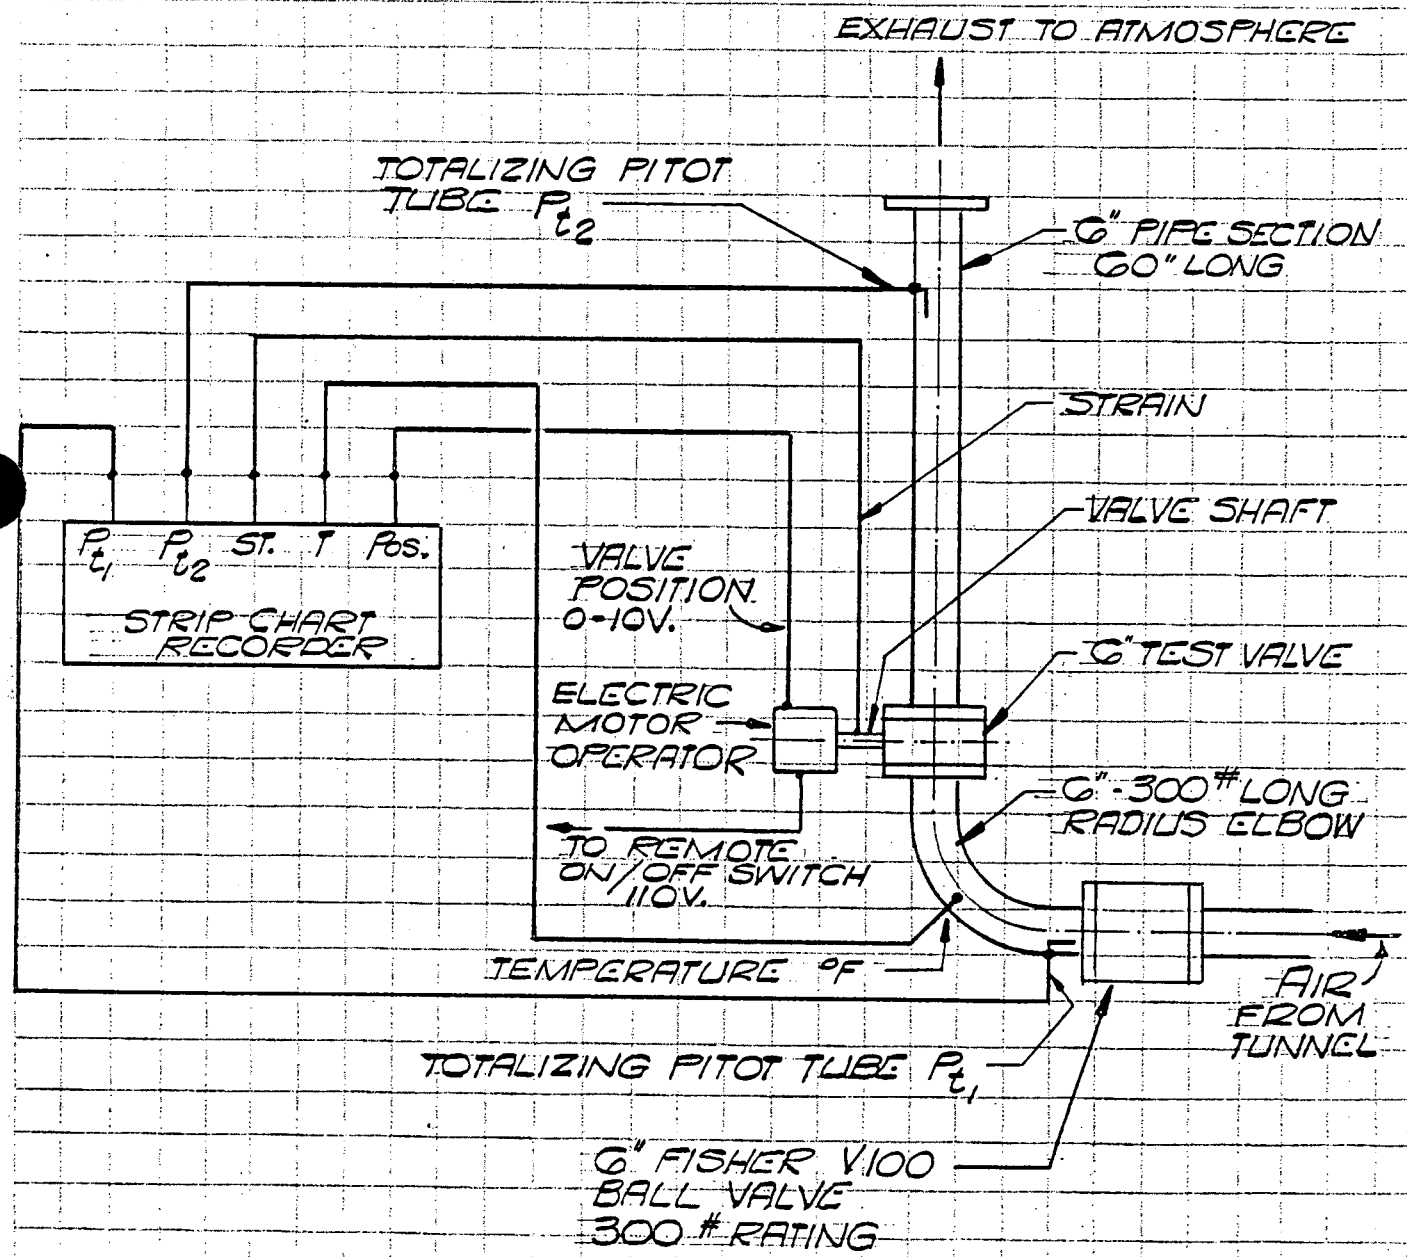 EXHAUST TO ATMOSPHERE
TOTALIZING PITOT
TUBE Pt2
6" PIPE SECTION
60" LONG
STRAIN
VALVE SHAFT
Pt1 Pt2 ST. T POS.
STRIP CHART
RECORDER
VALVE
POSITION
0-10V.
6" TEST VALVE
ELECTRIC
MOTOR
OPERATOR
6"-300# LONG
RADIUS ELBOW
TO REMOTE
ON/OFF SWITCH
110V.
TEMPERATURE °F
AIR
FROM
TUNNEL
TOTALIZING PITOT TUBE Pt1
6" FISHER V100
BALL VALVE
300 # RATING